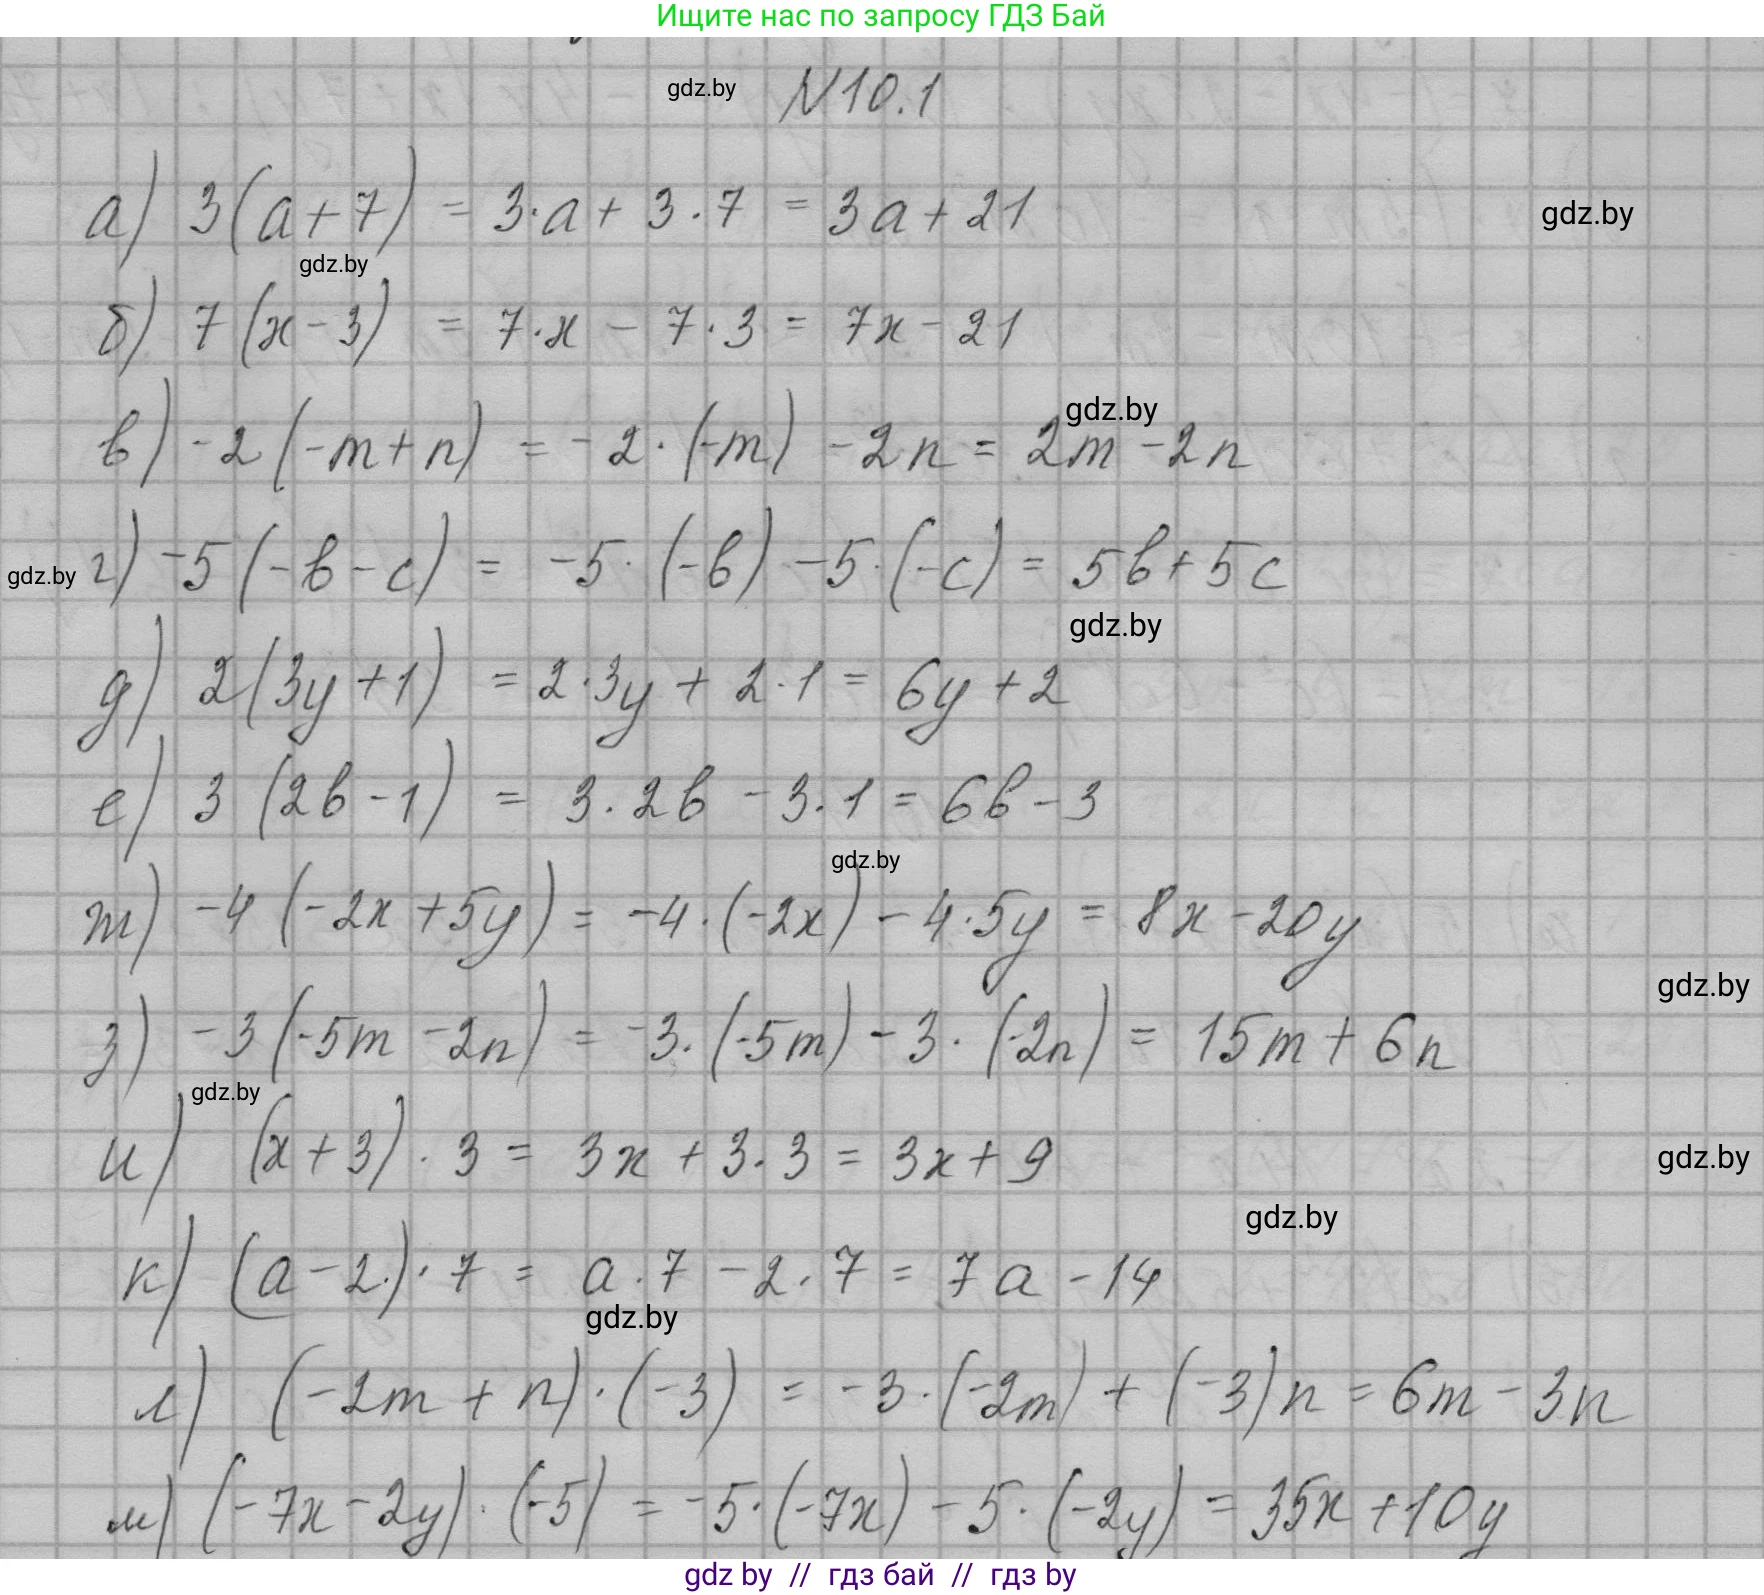 Ищите нас по запросу ГДЗ Бай
gdz.by N10.1
а) 3(a+7) = 3·a + 3·7 = 3a + 21
gdz.by
gdz.by
б) 7(x-3) = 7·x - 7·3 = 7x - 21
gdz.by
в) -2(-m+n) = -2·(-m) - 2n = 2m - 2n
gdz.by г) -5(-b-c) = -5·(-b) - 5·(-c) = 5b + 5c
gdz.by
д) 2(3y+1) = 2·3y + 2·1 = 6y + 2
е) 3(2b-1) = 3·2b - 3·1 = 6b - 3
gdz.by
ж) -4(-2x+5y) = -4·(-2x) - 4·5y = 8x - 20y
gdz.by
з) -3(-5m-2n) = -3·(-5m) - 3·(-2n) = 15m + 6n
gdz.by
и) (x+3)·3 = 3x + 3·3 = 3x + 9
gdz.by
gdz.by
к) (a-2)·7 = a·7 - 2·7 = 7a - 14
gdz.by
л) (-2m+n)·(-3) = -3·(-2m) + (-3)n = 6m - 3n
м) (-7x-2y)·(-5) = -5·(-7x) - 5·(-2y) = 35x + 10y
gdz by // гдз бай // гдз by